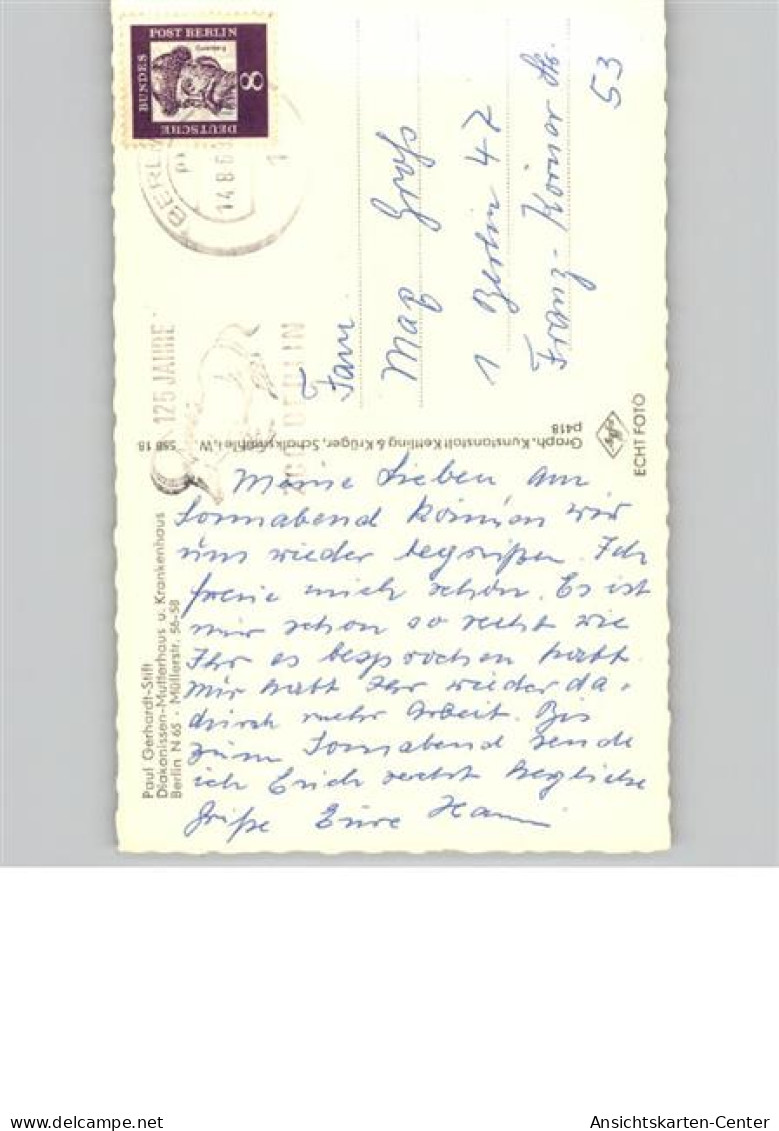 DEUTSCHE
BUNDES
POST BERLIN
8
BERLIN
14.8.6
1
125 JAHRE
ZOO BERLIN
Fam.
Max Groß
1 Berlin 47
Franz-Körner Str.
53
Graph. Kunstanstalt Kettling & Krüger, Schalksmühle i. W.
p418
558 18
Agfa
ECHT FOTO
Paul Gerhardt-Stift
Diakonissen-Mutterhaus u. Krankenhaus
Berlin N 65 · Müllerstr. 56-58
Meine Lieben am
Sonnabend können wir
uns wieder begrüßen. Ich
freue mich schon. Es ist
mir schon so recht wie
Ihr es besprochen habt.
Nur habt Ihr wieder da-
durch mehr Arbeit. Bis
zum Sonnabend sende
ich Euch recht herzliche
Grüße Eure
my-kolekcja.com
Ansichtskarten-Center